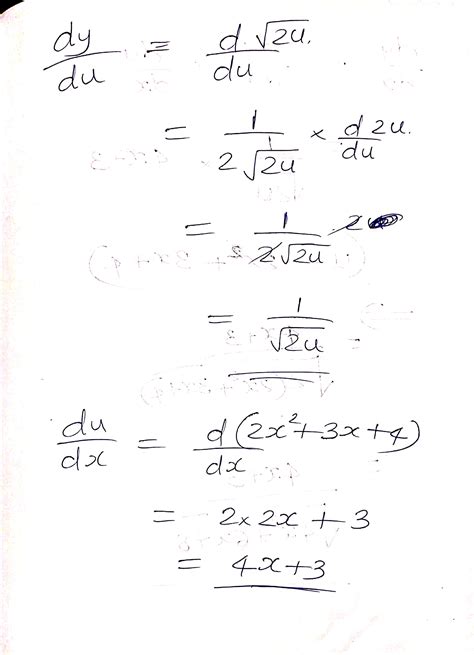 dy/du = d √2u/du
= 1/(2√2u) × d 2u/du
= 1/(2√2u) · 2
= 1/√2u
du/dx = d(2x²+3x+4)/dx
= 2×2x+3
= 4x+3